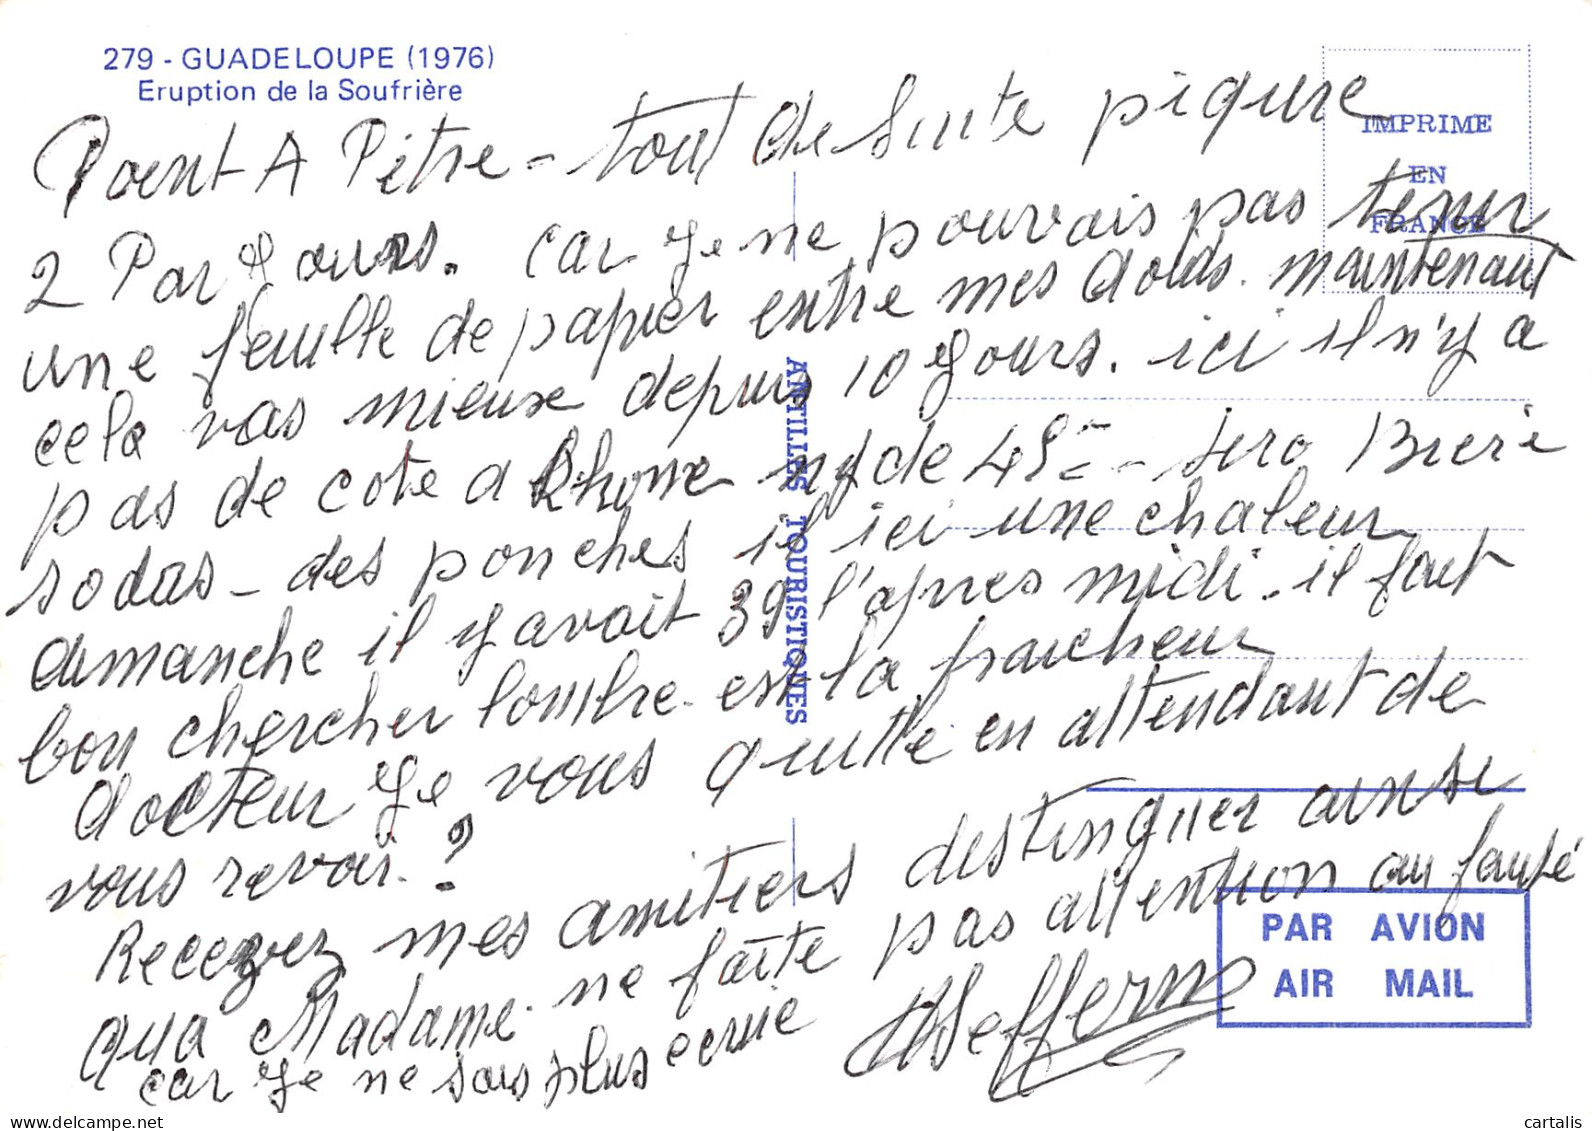 279 - GUADELOUPE (1976)
Eruption de la Soufrière
IMPRIME
EN
FRANCE
Poent A Pêtre - tout de suite piqure
2 Par Jours. car Je ne pouvais pas tenir
une feuille de papier entre mes doids. maintenant
cela vas mieux depuis 10 Jours. ici il n'y a
pas de cote a Rhone ny de 45 - sero Biere
sodas - des ponches il ici une chaleur
dimanche il y avait 39 l'apres midi. il faut
bon chercher lombre est la fraicheur
docteur Je vous quitte en attendant de
vous revoir. ?
Recevez mes amitiers distinguer ainsi
qua Madame. ne faite pas attention au fauté
car Je ne sais plus ecrire
ANTILLES TOURISTIQUES
PAR AVION
AIR MAIL
www.delcampe.net
cartalis